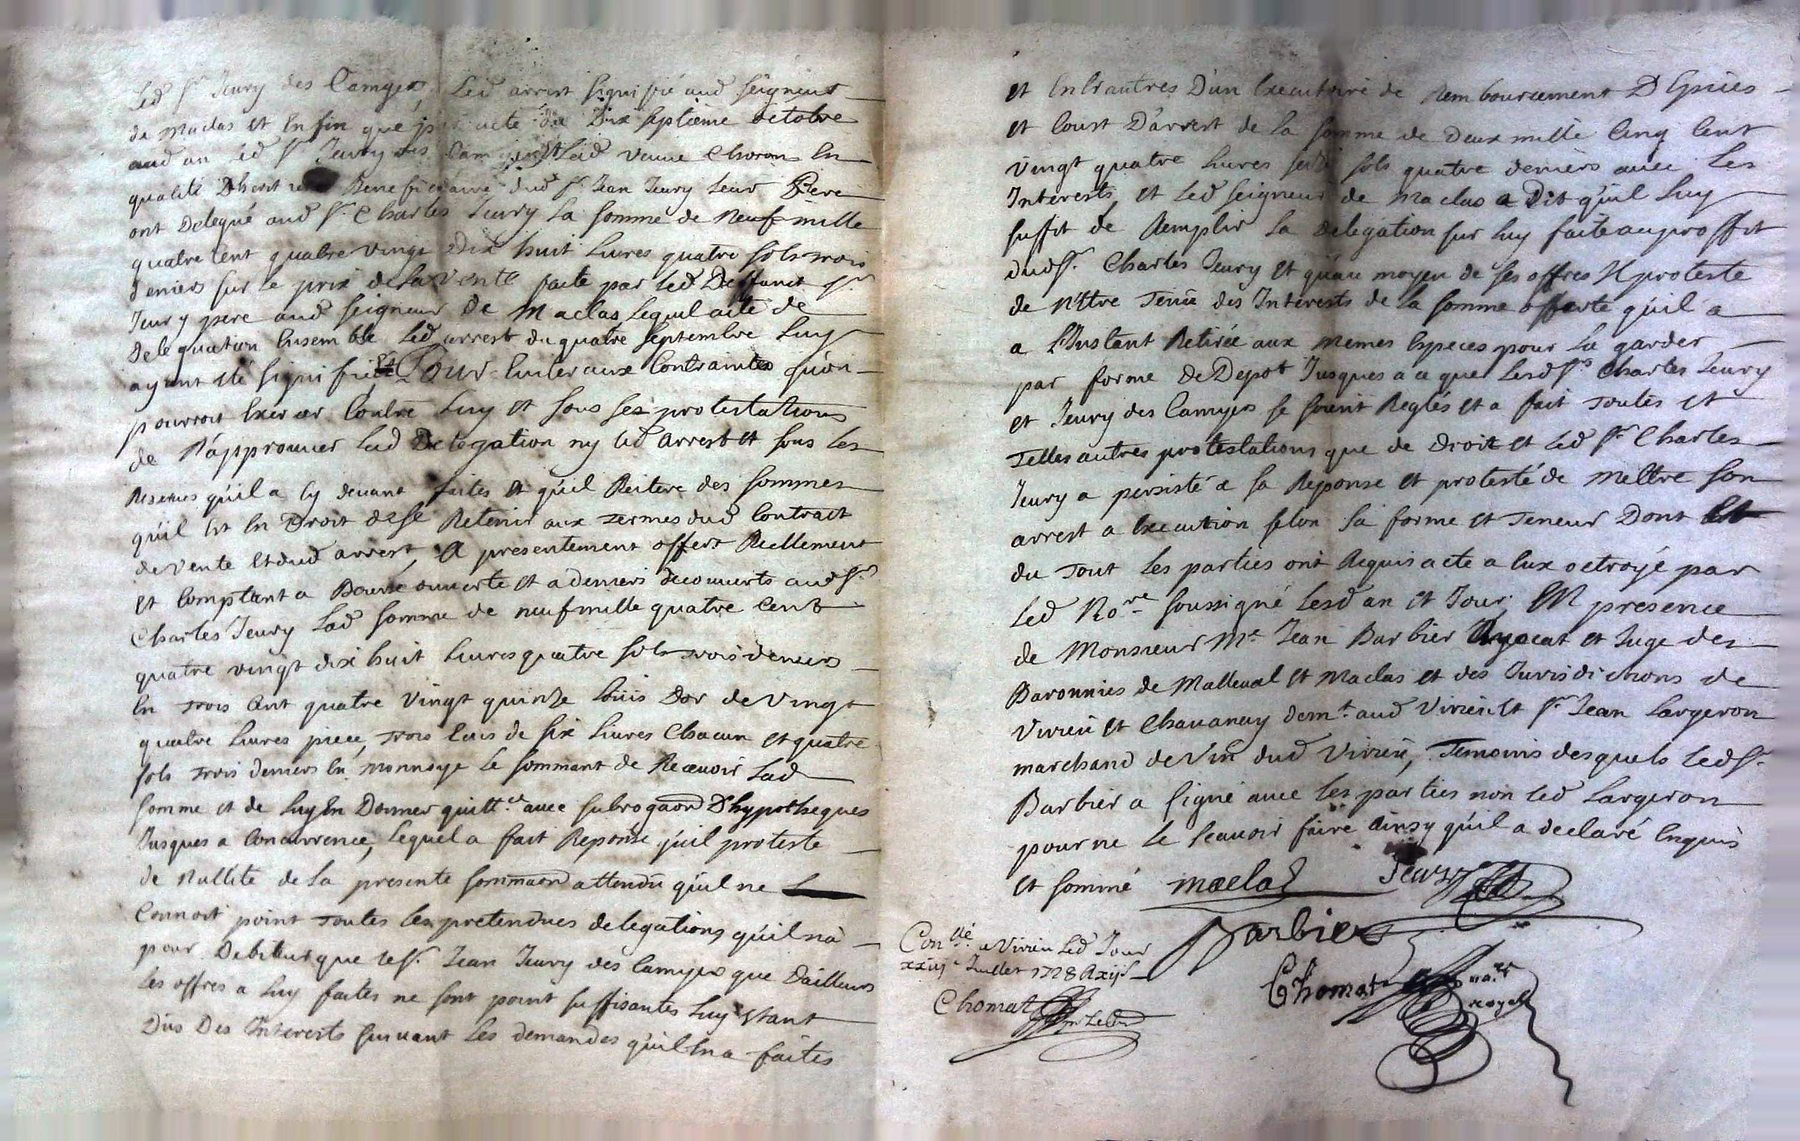 Led Sr. Jeury des Camyos, Led arrest signifié aud seigneur
de maclas et Enfin que par acte du Dix septieme octobre
aud an Led Sr. Jeury des Camyos et Lad veuve Choron En
qualité D'heritiers Beneficiaires dud Sr. Jean Jeury Leur Pere
ont Delegué aud Sr. Charles Jeury La somme de neuf mille
quatre Cent quatre vingt Dix huit Livres quatre sols trois
deniers sur le prix de la vente faite par led Deffunt Sr
Jeury pere aud seigneur de maclas Lequel acte de
delegation Ensemble Led arrest du quatre septembre Luy
ayant eté signifié Et Pour Eviter aux Contraintes qu'on
pourroit Exercer Contre Luy et sous ses protestations
de N'approuver Lad Delegation ny led arrest et sous les
Reserves qu'il a Cy devant faites et qu'il Reitere des sommes
qu'il Est En Droit de se Retenir aux termes dud Contract
de vente et dud arrest, A presentement offert Reellement
et Comptant a Bource ouverte et a deniers decouverts aud Sr.
Charles Jeury Lad somme de neuf mille quatre Cent
quatre vingt dix huit Livres quatre sols trois deniers
En trois Cent quatre vingt quinze Loüis Dor de vingt
quatre Livres piece, trois Ecus de six Livres Chacun et quatre
sols trois deniers En monnoye le sommant de Recevoir Lad
somme et de Luy En Donner quittce avec subrogaon D'hypotheques
Jusques a Concurrence, Lequel a fait Reponse qu'il proteste
de Nullité de La presente sommaon attendu qu'il ne
Connoit point toutes les pretendues delegations qu'il n'a
pour Debiteur que le Sr. Jean Jeury des Camyos que D'ailleurs
les offres a Luy faites ne sont point suffisantes Luy Etant
Dus Des Interests suivant Les demandes qu'il En a faites
et Entr'autres D'un Executoire de Remboursement D'Epices
et Coust D'arrest de La somme de Deux mille Cinq Cent
vingt quatre Livres seize sols quatre deniers avec Les
Interests, et Led seigneur de maclas a Dit qu'il Luy
suffit de Remplir La delegation sur Luy faite au proffit
dud Sr. Charles Jeury et qu'au moyen de ses offres Il proteste
de N'Etre Tenu des Interests de La somme offerte qu'il a
a L'Instant Retirée aux mêmes Especes pour La garder
par forme de Depot Jusques a ce que Lesd Srs. Charles Jeury
et Jeury des Camyos se soient Reglés et a fait toutes et
telles autres protestations que de Droit et Led Sr. Charles
Jeury a persisté a sa Reponse et protesté de mettre son
arrest a Execution selon sa forme et teneur Dont Et
du tout Les parties ont Requis acte a Eux octroyé par
Led Nore soussigné Lesd an et Jour, EN presence
de Monsieur Me Jean Barbier Avocat et Juge des
Baronnies de Malleval et Maclas et des Jurisdictions de
Virieü et Chavanay demt. aud Virieü et Sr. Jean Largeron
marchand de Vin dud Virieü, Temoins desquels led Sr.
Barbier a signé avec les parties non led Largeron
pour ne Le scavoir faire ainsy qu'il a declaré Enquis
et sommé maclas Jeury
Barbier
Conllé a Virieu Led Jour
xxiije Juillet 1728 R xijs
Chomat
Chomat nore
royal